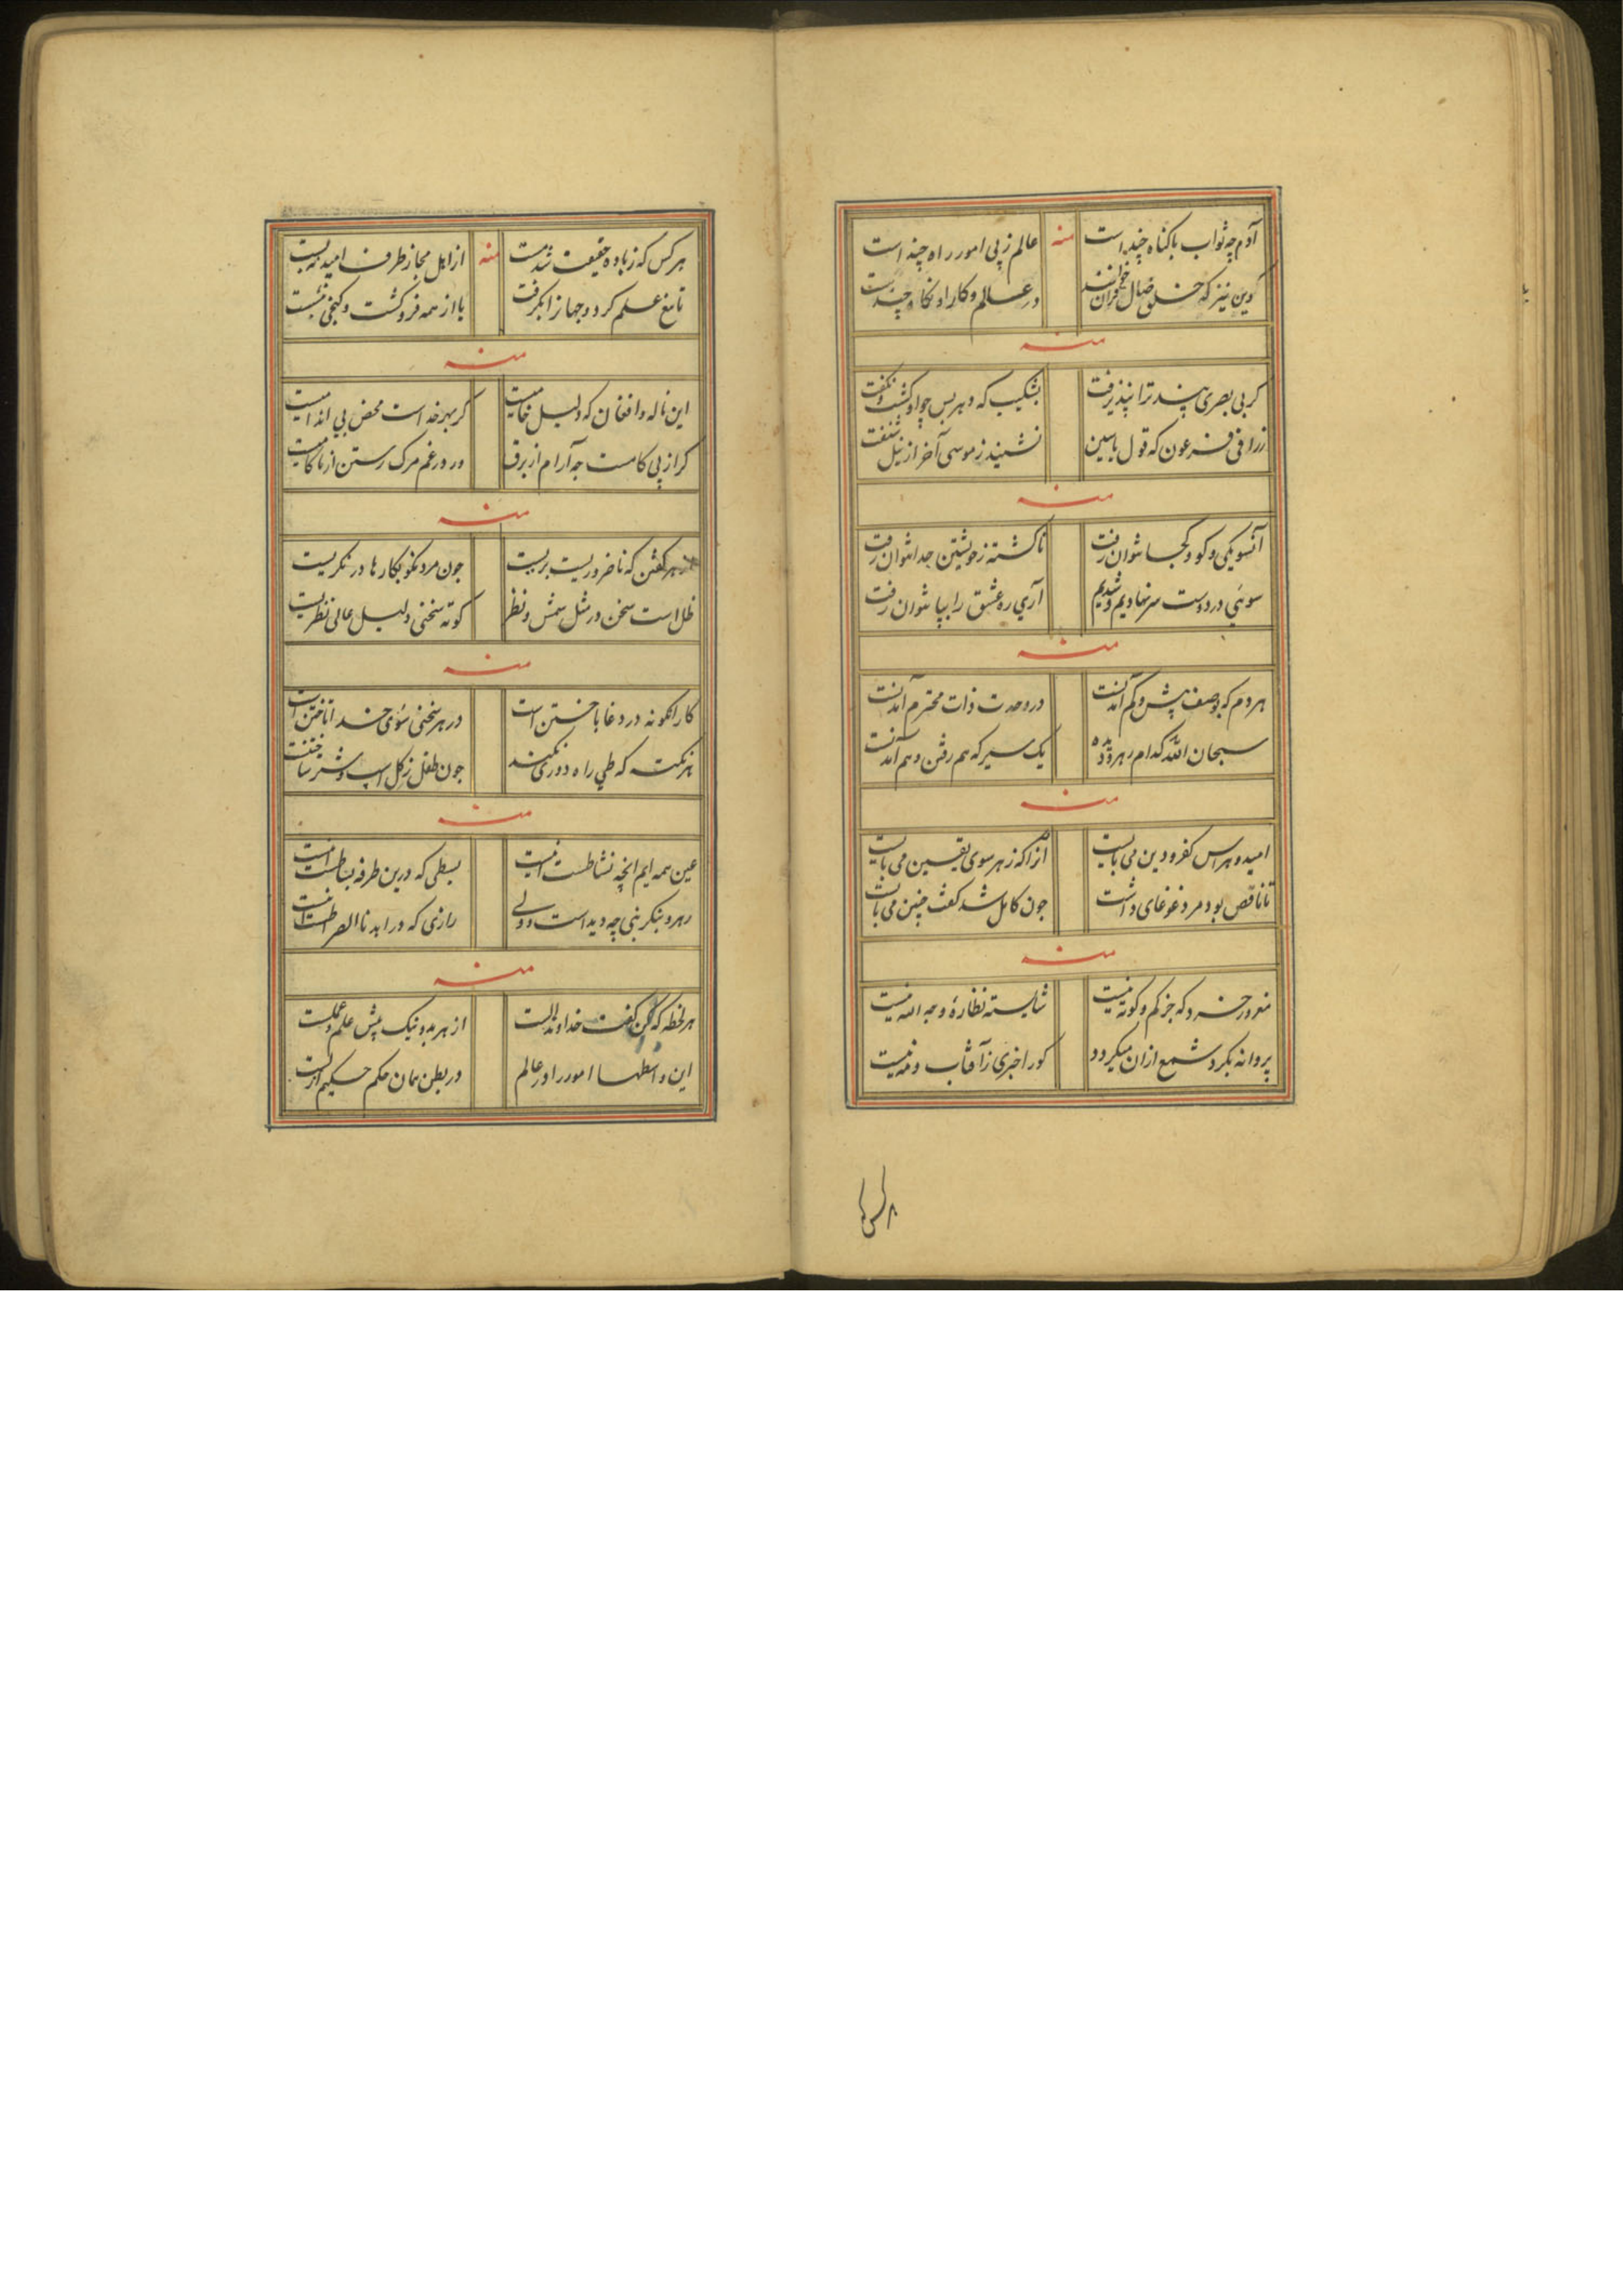 آدم چه ثواب با کناه چند است منه عالم ز پی امور راه چند است
وین نیز که خلق خیال خوانند در عالم و کار او نکاه چند است
منه
کر بی بصری پند ترا نپذیرفت بشکیب که دهر بس جواد کشت و نکفت
فرعون که قول یاسین نشنید ز موسی آخر از نیل شنفت
منه
آنسو یکی و کو و کجا نتوان رفت ناکشته ز خویشتن جدا نتوان رفت
سوی در دوست سر نهادیم و شدیم آری ره عشق را بپا نتوان رفت
منه
هر دم که بوصف بیش و کم آمدنست در وحدت ذات محترم آمدنست
سبحان الله کدام رهرو دیده یک سیر که هم رفتن و هم آمدنست
منه
امید و هراس کفر و دین می بایست از آنکه ز هر سوی یقین می بایست
تا ناقص بود مرد غوغای داشت چون کامل شد کفت چنین می بایست
منه
مغرور خرد که جز کم و کوته نیست شایسته نظارهٔ وجه الله نیست
پروانه بکرد شمع ازان میکردد کو را خبری ز آفتاب و مه نیست
هر کس که ز باده حقیقت شد مست منه از اهل مجاز طرف امید نه بست
تا تیغ علم کرد و جهان را بکرفت با از همه فرو کشت و کنجی نشست
منه
این ناله و افغان که دلیل خامیست کر بهر خداست محض بی اندامیست
کر از پی کامست چه آرام از برق ور در غم مرک رستن از ناکامیست
منه
هر کفتن که نا ضروریست بریست چون مرد نکو بکارها در نکریست
ظل است سخن در مثل شمس و نظر کوته سخنی دلیل عالی نظریست
منه
کار انکونه در دغا باختن است در هر سخنی سوی خدا تاختن است
هر نکته که طی راه دوری نکند چون طفل ز کل اسب و شتر ساختنست
منه
عین همه ایم انچه نشاطست اینست بسطی که درین طرفه بساطست اینست
رهرو بنکر نبی چه دید است و ولی رازی که در اهدنا الصراطست اینست
منه
هر لحظه که کن کفت خداوند الست از هر بد و نیک پیش علم و عملست
این واسطها امور را در عالم در بطن همان حکم حکیم ازلست